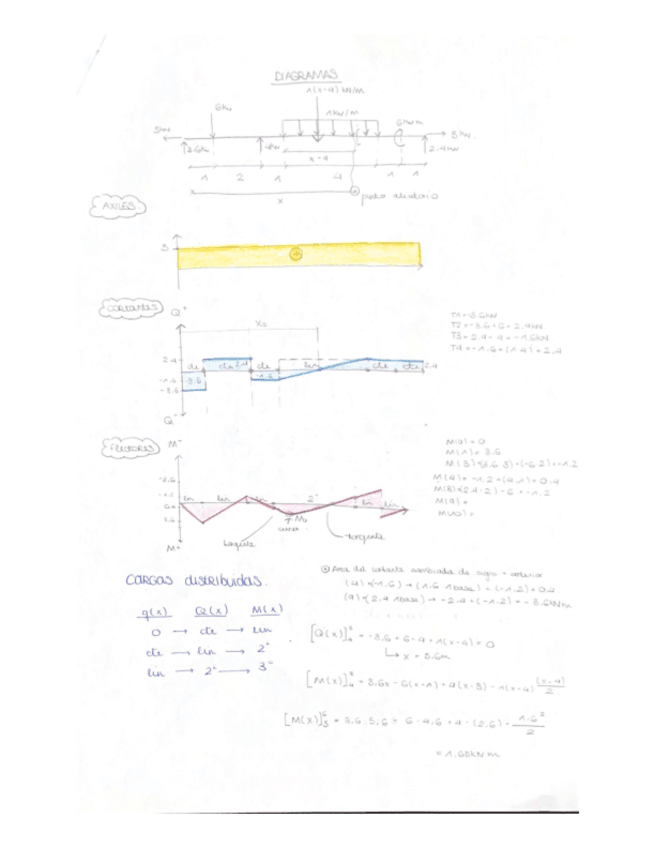 DIAGRAMAS
1(x-4) kN/m
6kN
1kN/m
6kNm
5kN
3.6kN
4kN
2.4kN
x-4
1 2 1 4 1 1
x
punto aleatorio
AXILES
5
+
CORTANTES
Q⁻
x₀
T1=-3.6kN
T2=-3.6+6=2.4kN
T3=2.4-4=-1.6kN
T4=-1.6+(1·4)=2.4
2.4
cte cte 2.4 cte lin cte cte 2.4
-1.6 -3.6 -1.6
-3.6
Q⁺
FLECTORES
M⁻
M(0)=0
M(1)=3.6
M(3)=(3.6·3)+(-6·2)=-1.2
M(4)=-1.2+(4·1)=0.4
M(8)=(2.4·2)-6=-1.2
M(9)=
M(10)=
lin lin lin 2° lin lin
M₀
tangente
tangente
M⁺
CARGAS distribuidas.
Area del cortante cambiada de signo + anterior
(4)=(-1.6)→(1.6·1base)+(-1.2)=0.4
(9)=(2.4·1base)→-2.4+(-1.2)=-3.6kNm
q(x) Q(x) M(x)
0 → cte → lin
cte → lin → 2°
lin → 2° → 3°
= -3.6+6-4+1(x-4)=0
↳ x = 5.6m
= 3.6x-6(x-1)+4(x-3)-1(x-4)(x-4)/2
= 3.6·5.6+6·4.6+4·(2.6)+1.6²/2
= 1.68kNm